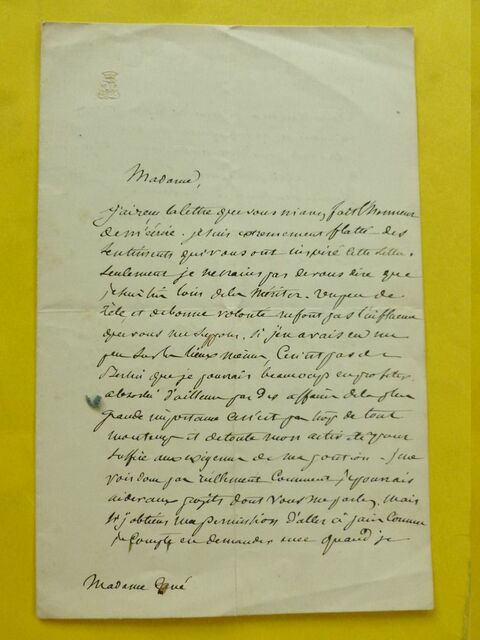 Madame,
J'ai reçu la lettre que vous m'avez fait l'honneur
de m'écrire. je suis extremement flatté des
sentiments qui vous ont inspiré cette lettre.
Seulement je ne crains pas de vous dire que
je suis bien loin de les mériter. Un peu de
zèle et de bonne volonté ne font pas l'influence
que vous me supposez. Si j'en avais eu un
peu sur les lieux même, ce n'est pas de
Berlin que je pourrais beaucoup en profiter.
absorbé d'ailleurs par des affaires de la plus
grande importance ce n'est pas trop de tout
mon temps et de toute mon activité pour
suffire aux exigences de ma position. Je ne
vois donc pas réellement comment je pourrais
aider aux projets dont vous me parlez, mais
si j'obtiens ma permission d'aller à
je compte en demander une quand je
Madame